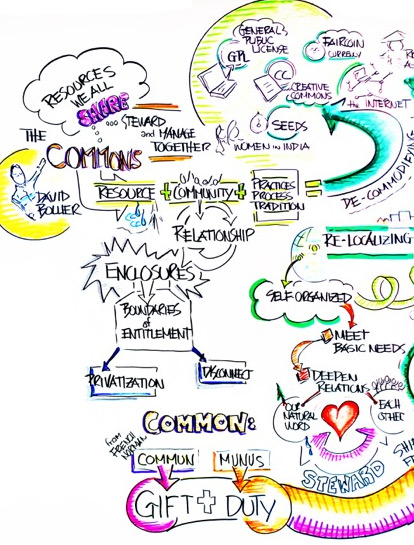 RESOURCES
WE ALL
SHARE
... STEWARD
and MANAGE
TOGETHER
THE
COMMONS
DAVID
BOLLIER
RESOURCE + COMMUNITY + PRACTICES
PROCESS
TRADITION =
RELATIONSHIP
ENCLOSURES
BOUNDARIES
of
ENTITLEMENT
PRIVATIZATION
DISCONNECT
GENERAL
PUBLIC
LICENSE
GPL
FAIRCOIN
CURRENCY
CC
CREATIVE
COMMONS
the INTERNET
SEEDS
WOMEN IN INDIA
DE-COMMODIFYING
RE-LOCALIZING
SELF ORGANIZED
MEET
BASIC NEEDS
DEEPEN
RELATIONS
OUR
NATURAL
WORD
EACH
OTHER
STEWARD
COMMON:
from
FRENCH
NORMAN
COMMUN
MUNUS
GIFT + DUTY